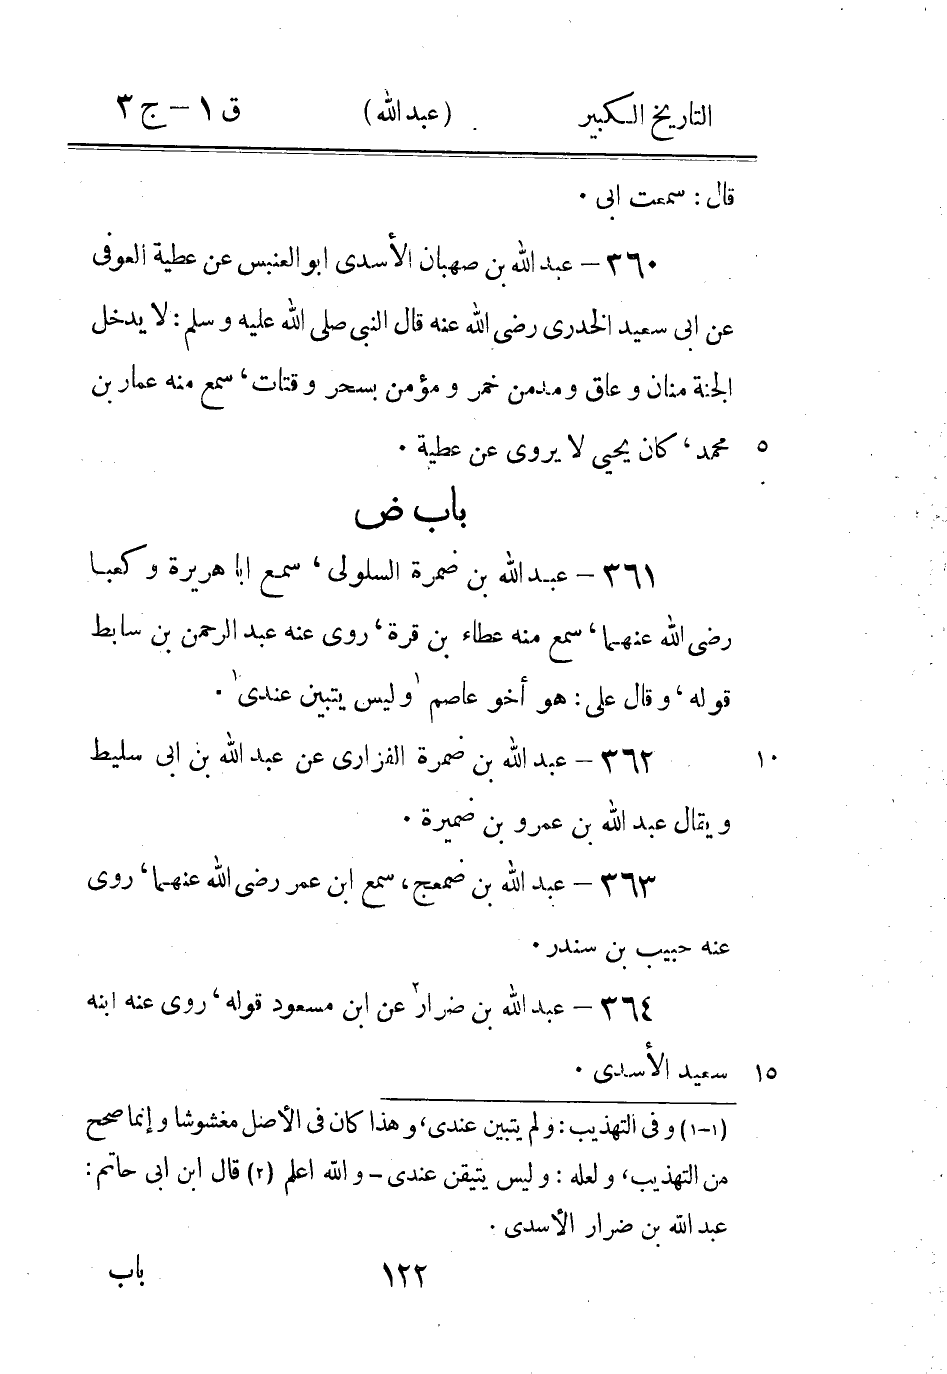 التاريخ الكبير (عبد الله) ق ١ – ج ٣
قال : سمعت ابى ٠
٣٦٠ – عبد الله بن صهبان الأسدى ابو العنبس عن عطية العوفى
عن ابى سعيد الخدرى رضى الله عنه قال النبى صلى الله عليه و سلم : لا يدخل
الجنة منان و عاق و مدمن خمر و مؤمن بسحر و قتات ، سمع منه عمار بن
محمد ، كان يحيى لا يروى عن عطية ٠ ٥
باب ض
٣٦١ – عبد الله بن ضمرة السلولى ، سمع ابا هريرة و كعبا
رضى الله عنهما ، سمع منه عطاء بن قرة ، روى عنه عبد الرحمن بن سابط
قوله ، و قال على : هو أخو عاصم ١و ليس يتبين عندى١ ٠
٣٦٢ – عبد الله بن ضمرة الفزارى عن عبد الله بن ابى سليط ١٠
و يقال عبد الله بن عمرو بن ضميرة ٠
٣٦٣ – عبد الله بن ضمعج ، سمع ابن عمر رضى الله عنهما ، روى
عنه حبيب بن سندر ٠
٣٦٤ – عبد الله بن ضرار٢ عن ابن مسعود قوله ، روى عنه ابنه
سعيد الأسدى ٠ ١٥
(١-١) و فى التهذيب : و لم يتبين عندى ، و هذا كان فى الأصل مغشوشا و إنما صحح
من التهذيب ، و لعله : و ليس يتيقن عندى – و الله اعلم (٢) قال ابن ابى حاتم :
عبد الله بن ضرار الأسدى ٠
١٢٢ باب